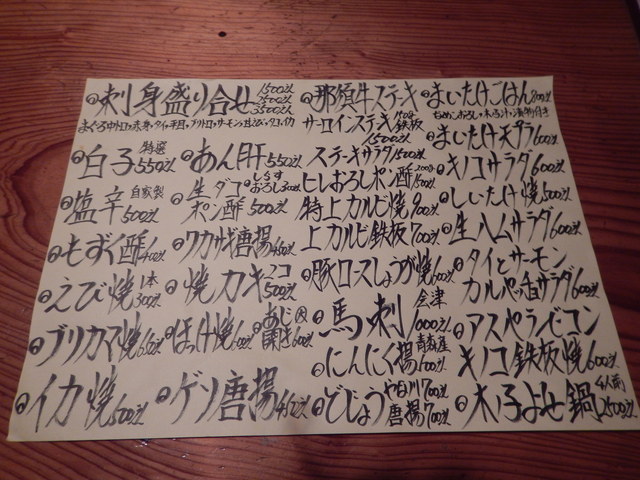 刺身盛り合せ 1500以 2500以 3500以
まぐろ中トロ・赤身・タイ・平目・ブリトロ・サーモン・生えび・タコ・イカ
白子 特選 550以
あん肝 550以
塩辛 自家製 500以
生ダコポン酢 500以
しらすおろし 300以
もずく酢 400以
ワカサギ唐揚 450以
えび焼 1本 300以
焼カキ 2コ 500以
ブリカマ焼 600以
ほっけ焼 600以
あじ開き 600以
イカ焼 500以
ゲソ唐揚 450以
那須牛ステーキ
サーロインステーキ 150g 鉄板 1500以
ステーキサラダ 1500以
ヒレおろしポン酢 200g 1500以
特上カルビ焼 900以
上カルビ鉄板 700以
豚ロースしょうが焼 600以
馬刺 会津 1000以
にんにく揚 青森産 400以
どじょう やながわ 700以
唐揚 700以
まいたけごはん 800以
まいたけ天プラ 600以
キノコサラダ 600以
しいたけ焼 500以
生ハムサラダ 600以
タイとサーモン
カルパッチョサラダ 600以
アスパラベーコン
キノコ鉄板焼 600以
木の子よせ鍋 2人前 2500以